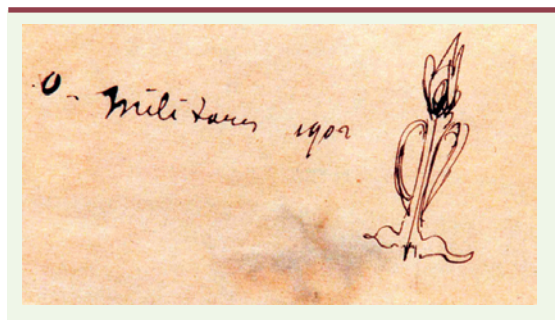 O. militaris 1902